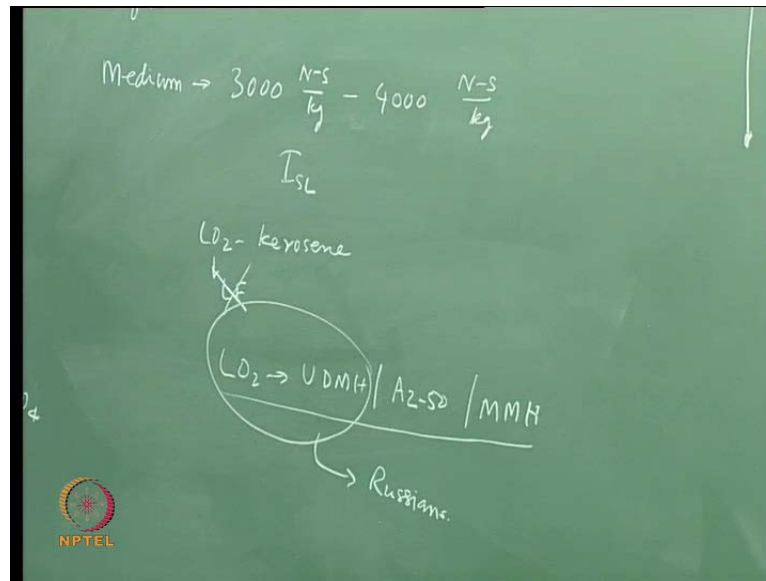 Medium → 3000 N-S/kg - 4000 N-S/kg
I_SL
LO₂ - kerosene
LO₂ → UDMH / AZ-50 / MMH
Russians.
NPTEL